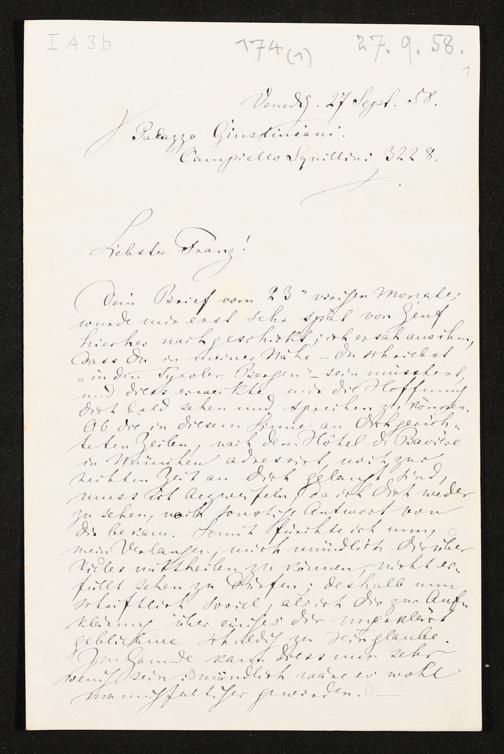 I A 3b
174 (1)
27. 9. 58.
1
Venedig. 27 Sept. 58.
Palazzo Giustiniani.
Campiello Squillini 3228.
Liebster Franz!
Dein Brief vom 23" vorigen Monates
wurde mir erst sehr spät von Genf
hierher nachgeschickt; ich ersah aus ihm,
dass Du in meiner Nähe – Du schriebst
„in den Tyroler Bergen" – sein müsstest,
und diess erweckte mir die Hoffnung
Dich bald sehen und sprechen zu können.
Ob die in diesem Sinne an Dich gerich-
teten Zeilen, nach dem Hôtel de Bavière
in München adressirt, noch zur
rechten Zeit an Dich gelangt sind,
muss ich bezweifeln, da ich Dich weder
zu sehen, noch sonstige Antwort von
Dir bekam. Somit fürchte ich nun,
mein Verlangen, mich mündlich Dir über
Vieles mittheilen zu können, nicht er-
füllt sehen zu dürfen; deshalb nun
schriftlich soviel, als ich Dir zur Auf-
klärung über einiges Dir unerklärt
gebliebene schuldig zu sein glaube.
Im Grunde kann diess nur sehr
wenig sein: mündlich wäre es wohl
mannichfaltiger geworden. –